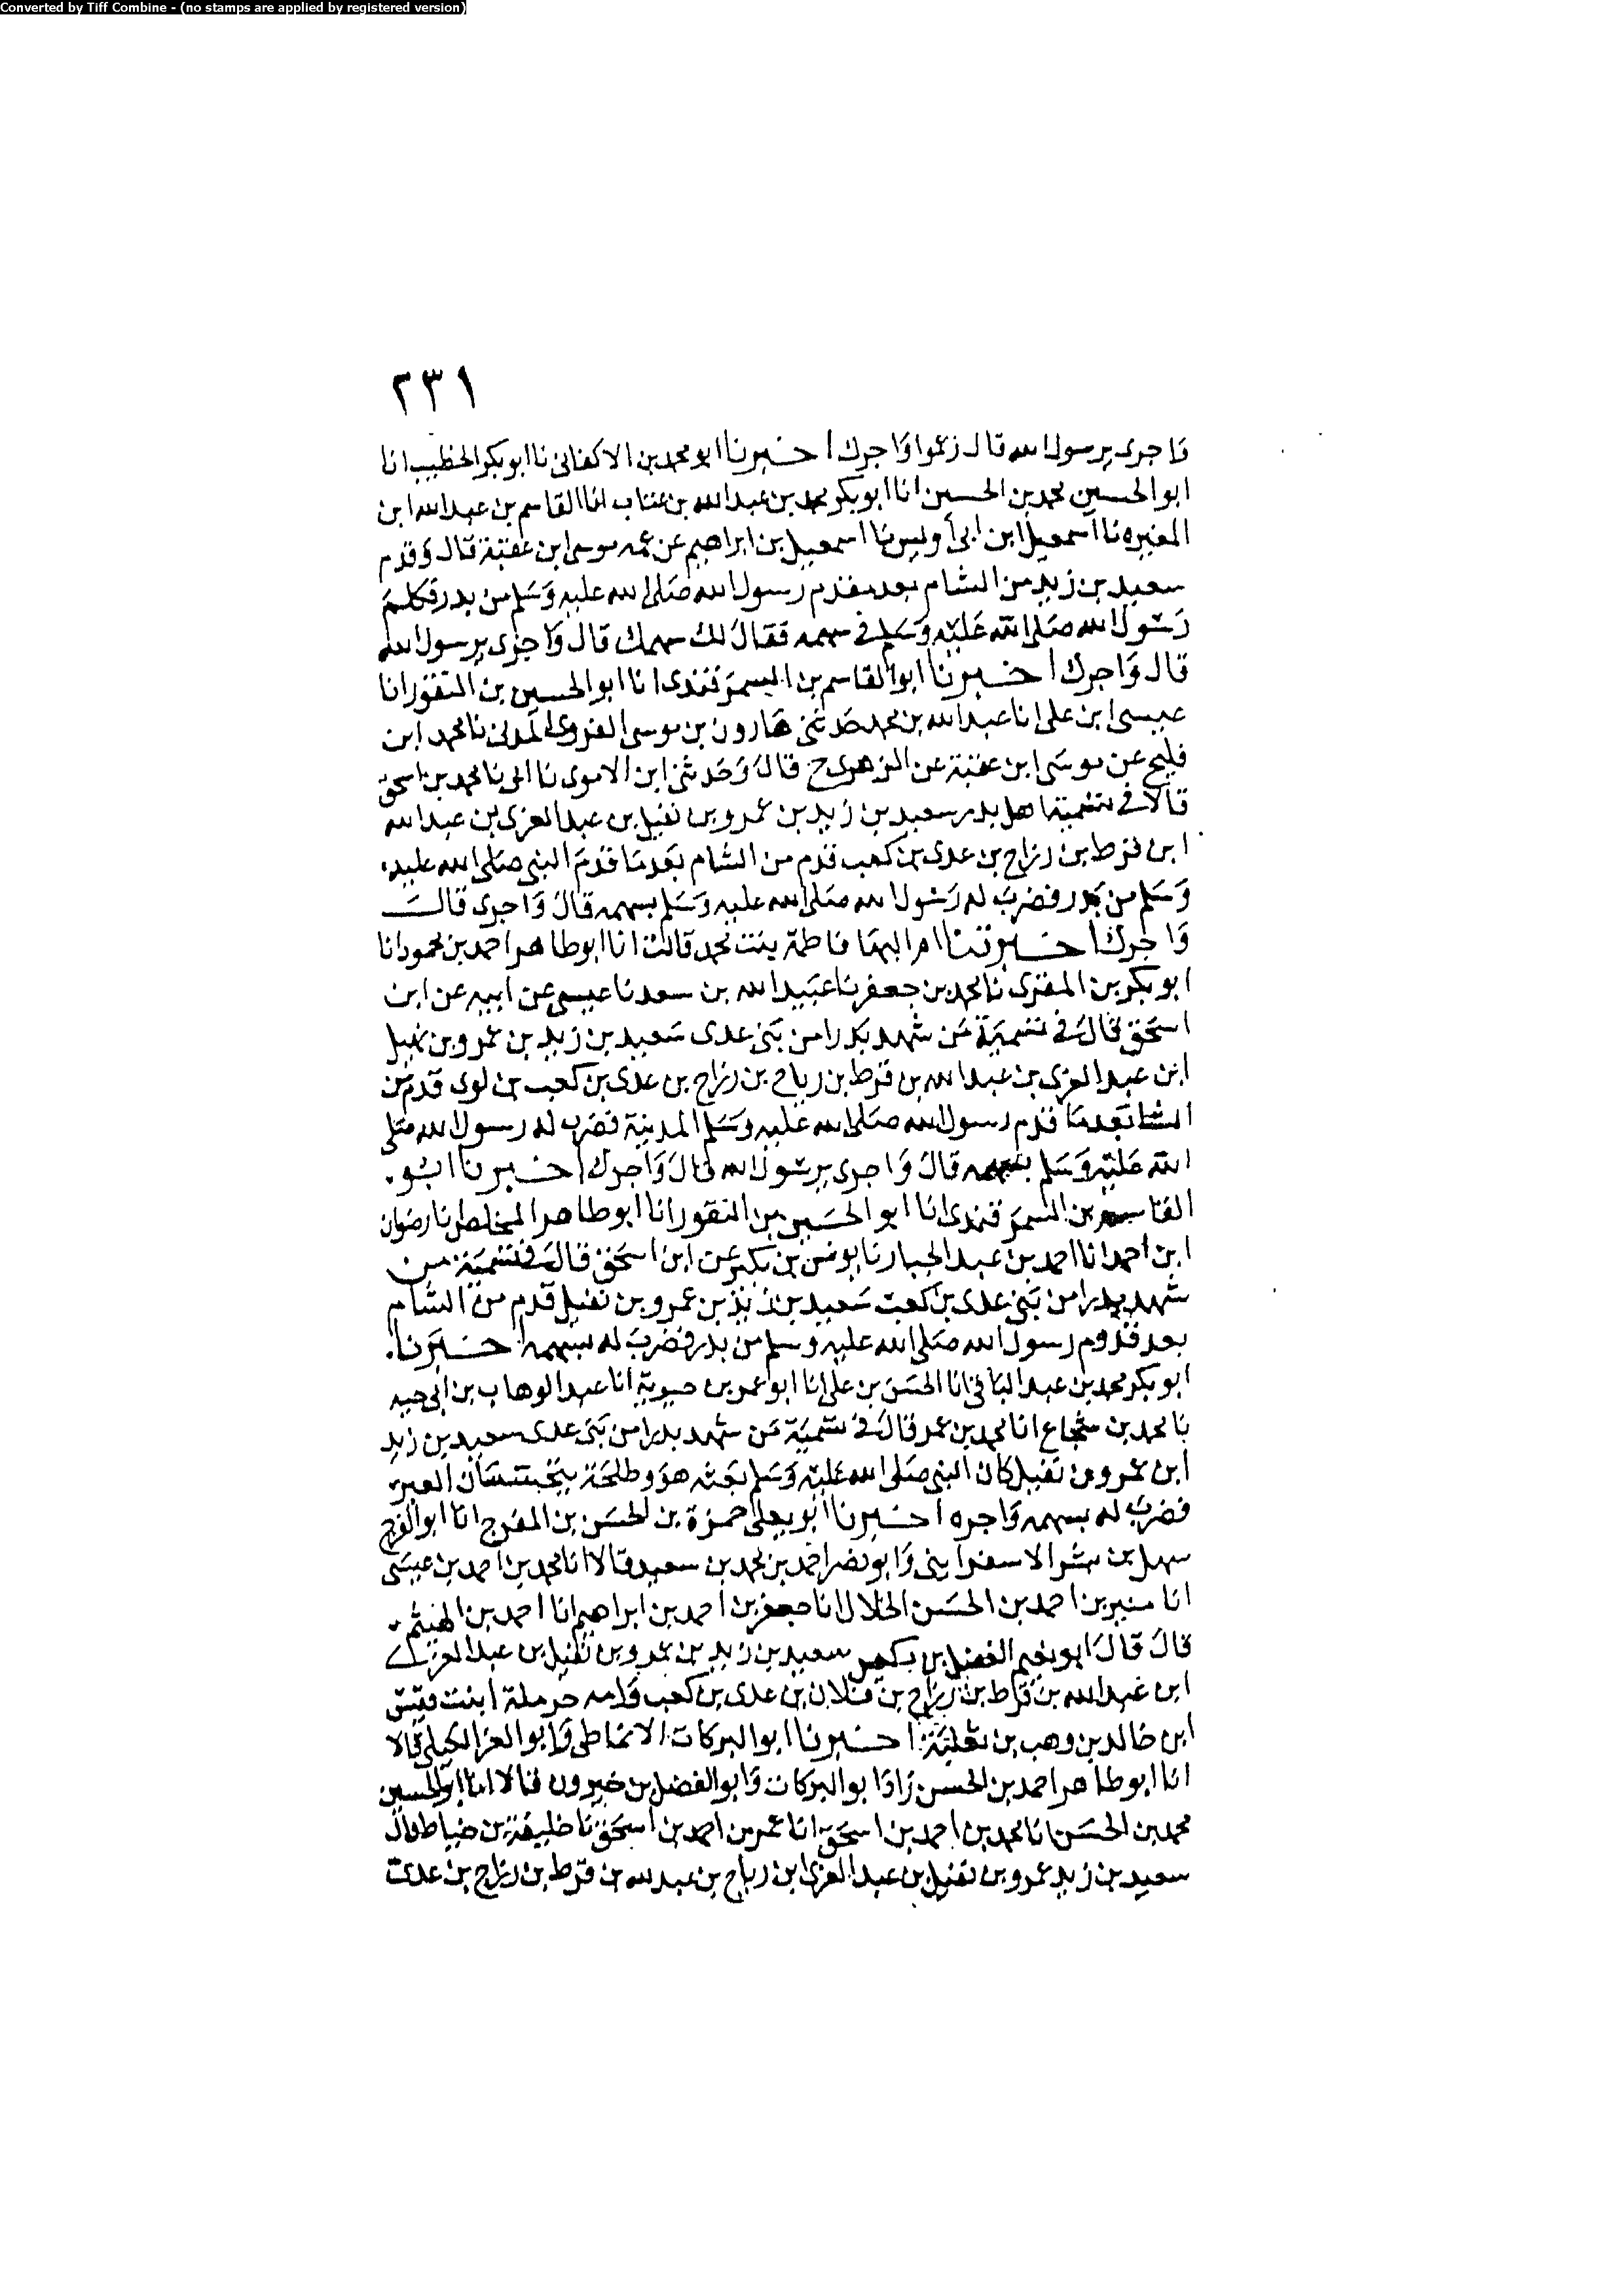 Converted by Tiff Combine - (no stamps are applied by registered version)
٢٣١
واجرى يرسول الله قال زعموا واجرك اخبرنا ابو محمد بن الاكفانى نا ابو بكر الخطيب انا
ابو الحسين محمد بن الحسين انا ابو بكر محمد بن عبد الله بن عتاب انا القاسم بن عبد الله ابن
المغيره نا اسمعيل ابن ابى أويس نا اسمعيل بن ابراهيم عن عمه موسى ابن عقبة قال وقدم
سعيد بن زيد من الشام بعد مقدم رسول الله صلى الله عليه وسلم من بدر فكلم
رسول الله صلى الله عليه وسلم فى سهمه فقال لك سهمك قال واجرى يرسول الله
قال واجرك اخبرنا ابو القاسم بن السمرقندى انا ابو الحسين بن النقور انا
عيسى ابن على انا عبد الله بن محمد حدثنى هارون بن موسى الفروى المدنى نا محمد ابن
فليح عن موسى ابن عقبة عن الزهرى ح قال وحدثنى ابن الاموى نا ابى نا محمد بن اسحق
قالا فى تسمية اهل بدر سعيد بن زيد بن عمرو بن نفيل بن عبد العزى بن عبد الله
ابن قرط بن رزاح بن عدى بن كعب قدم من الشام بعد ما قدم النبى صلى الله عليه
وسلم من بدر فضرب له رسول الله صلى الله عليه وسلم بسهمه قال واجرى قال
واجرك اخبرتنا ام البها فاطمة بنت محمد قالت انا ابو طاهر احمد بن محمود انا
ابو بكر بن المقرى نا محمد بن جعفر نا عبيد الله بن سعد نا عيسى عن ابيه عن ابن
اسحق قال فى تسمية من شهد بدرا من بنى عدى سعيد بن زيد بن عمرو بن نفيل
ابن عبد العزى بن عبد الله بن قرط بن رياح بن رزاح بن عدى بن كعب بن لوى قدم من
الشا بعد ما قدم رسول الله صلى الله عليه وسلم المدينة فضرب له رسول الله صلى
الله عليه وسلم بسهمه قال واجرى يرسول الله قال واجرك اخبرنا ابو
القاسم بن السمرقندى انا ابو الحسين بن النقور انا ابو طاهر المخلص نا رضوان
ابن احمد انا احمد بن عبد الجبار نا يونس بن بكير عن ابن اسحق قال فى تسمية من
شهد بدرا من بنى عدى بن كعب سعيد بن زيد بن عمرو بن نفيل قدم من الشام
بعد قدوم رسول الله صلى الله عليه وسلم من بدر فضرب له بسهمه اخبرنا
ابو بكر محمد بن عبد الباقى انا الحسن بن على انا ابو عمر بن حيوية انا عبد الوهاب بن ابى حيه
نا محمد بن شجاع انا محمد بن عمر قال فى تسمية من شهد بدرا من بنى عدى سعيد بن زيد
ابن عمرو بن نفيل كان النبى صلى الله عليه وسلم بعثه هو وطلحة يتحسسان العير
فضرب له بسهمه واجره اخبرنا ابو يعلى حمزة بن الحسن بن المفرج انا ابو الفرج
سهل بن بشر الاسفراينى وابو نصر احمد بن محمد بن سعيد قالا انا محمد بن احمد بن عيسى
انا منير بن احمد بن الحسن الخلال انا جعفر بن احمد بن ابراهيم انا احمد بن الهيثم
قال قال ابو نعيم الفضل بن دكين سعيد بن زيد بن عمرو بن نفيل بن عبد العزى
ابن عبد الله بن قراط بن رزاح بن فلان بن عدى بن كعب وامه حرملة ابنت قيس
ابن خالد بن وهب بن ثعلبة اخبرنا ابو البركات الانماطى وابو العز الكيلى قالا
انا ابو طاهر احمد بن الحسن زاد ابو البركات وابو الفضل بن خيرون قالا انا ابو الحسين
محمد بن الحسن انا محمد بن احمد بن اسحق انا عمر بن احمد بن اسحق نا خليفة بن خياط قال
سعيد بن زيد عمرو بن نفيل بن عبد العزى ابن رياح بن عبد لله بن قرط بن رزاح بن عدى